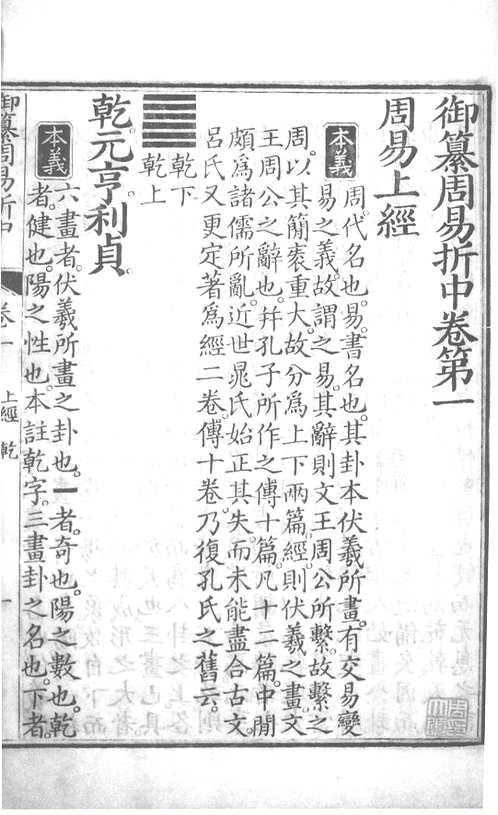 御纂周易折中卷第一
周易上經
本義
周。代名也。易。書名也。其卦本伏羲所畫。有交易變
易之義。故謂之易。其辭則文王周公所繫。故繫之
周。以其簡袠重大。故分為上下兩篇。經則伏羲之畫。文
王周公之辭也。幷孔子所作之傳十篇。凡十二篇。中閒
頗為諸儒所亂。近世晁氏始正其失。而未能盡合古文。
呂氏又更定著為經二卷。傳十卷。乃復孔氏之舊云。
乾下
乾上
乾。元亨。利貞。
本義
六畫者。伏羲所畫之卦也。一者。奇也。陽之數也。乾
者。健也。陽之性也。本註乾字。三畫卦之名也。下者。
御纂周易折中
卷一
上經 乾
一